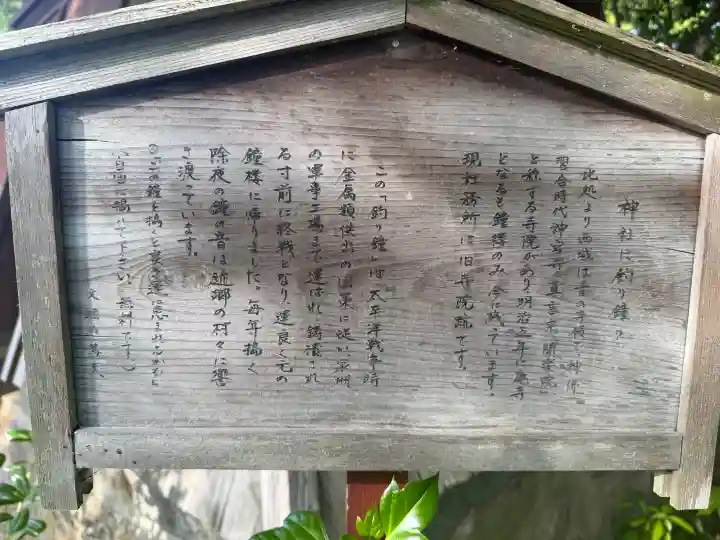 神社に釣り鐘?
此処より西域は昔の
習合時代神宮寺真言宗
と称する寺院があり明治三年に廃寺
となるも鐘楼のみ今に残っています。
現社務所は旧寺院跡です。
この「釣り鐘」は太平洋戦争時
に金属類供出の国策に従い
の軍事工場まで運ばれ鋳潰され
る寸前に終戦となり運良く元の
鐘楼に帰りました。毎年撞く
除夜の鐘の音は近郷の村々に響
き渡っています。
この鐘を撞くと幸運に恵まれるかも
自由に撞いて下さい 無料です。